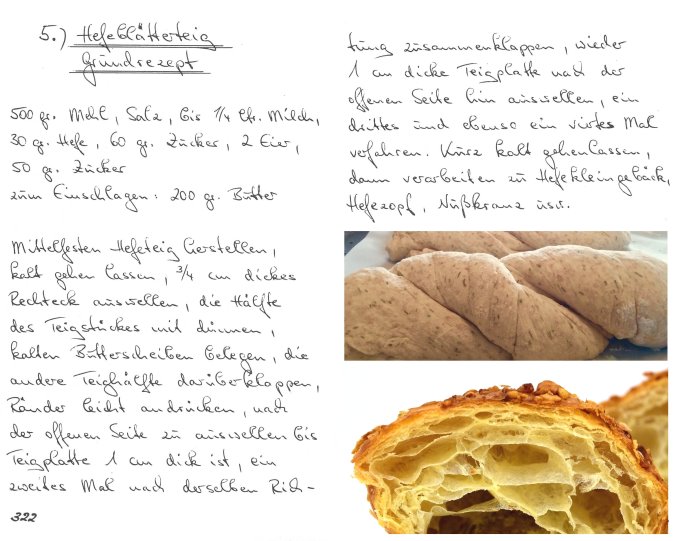 5.) Hefeblätterteig
Grundrezept
500 gr. Mehl, Salz, bis 1/4 ltr. Milch,
30 gr. Hefe, 60 gr. Zucker, 2 Eier,
50 gr. Zucker
zum Einschlagen: 200 gr. Butter
Mittelfesten Hefeteig herstellen,
kalt gehen lassen, 3/4 cm dickes
Rechteck auswellen, die Hälfte
des Teigstückes mit dünnen,
kalten Butterscheiben belegen, die
andere Teighälfte darüberklappen,
Ränder leicht andrücken, nach
der offenen Seite zu auswellen bis
Teigplatte 1 cm dick ist, ein
zweites Mal nach derselben Rich-
322
tung zusammenklappen, wieder
1 cm dicke Teigplatte nach der
offenen Seite hin auswellen, ein
drittes und ebenso ein viertes Mal
verfahren. Kurz kalt gehenlassen,
dann verarbeiten zu Hefekleingebäck,
Hefezopf, Nußkranz usw.